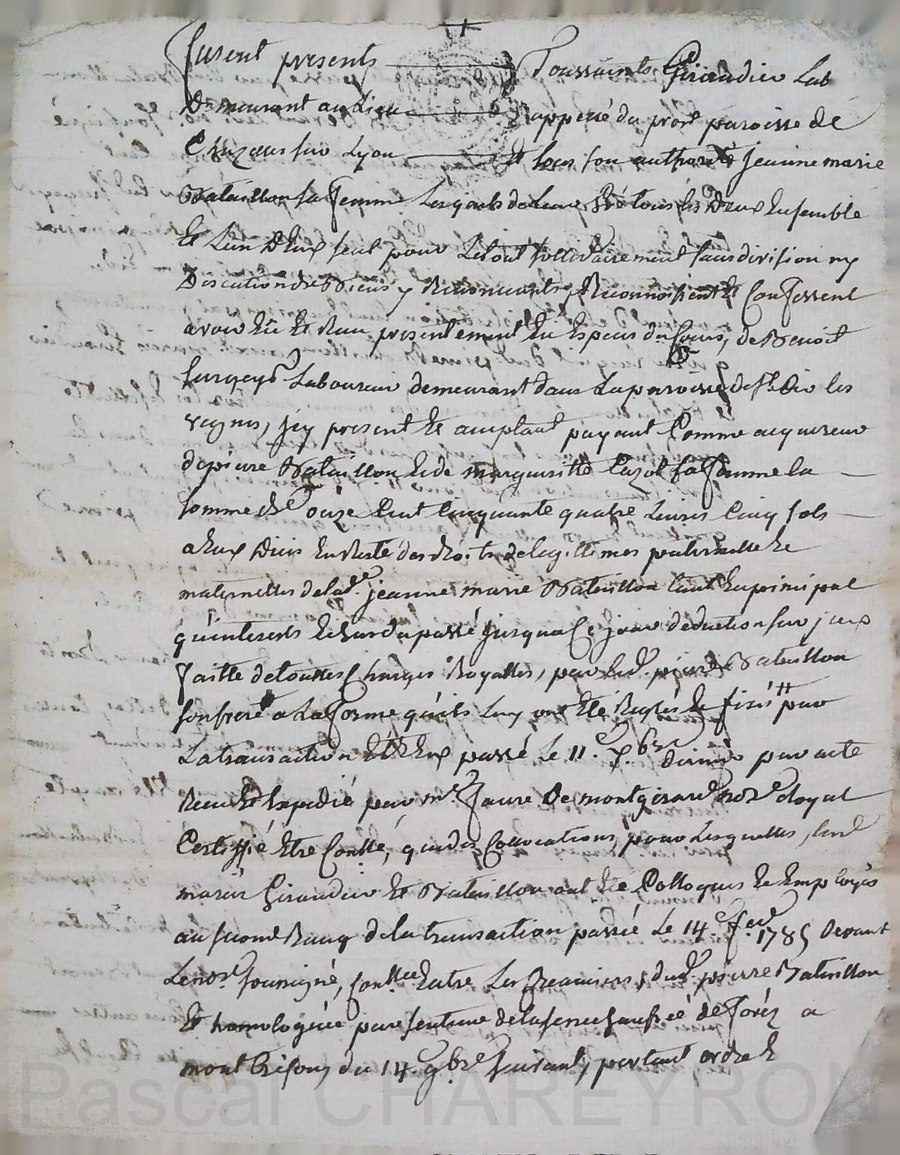 furent presents Toussaints Giraudier Lab
Demeurant au Lieu du prost paroisse de
Chazaus sur Lyon Et sous son authorité jeanne marie
Bataillon sa femme Lesquels de Leur Gré tous les Deux Ensemble
Et Lun D'Eux seul pour Letout sollidairement sans division ny
Discution de Biens y Renonceants, Reconnoissent Et Confessent
avoir Eu Et Reçu presentement En Especes du Cours, de Benoit
Laboureur demeurant dans La paroisse de les
vignes, jcy present Et acceptant payant Comme acquereur
de pierre Bataillon Et de margueritte Cazol sa femme la
somme de onze Cent Cinquante quatre Livres Cinq sols
a Eux Deus En Reste des droits de legittimes paternelle Et
maternelles de lad.e jeanne marie Bataillon tant En principal
qu'interests Et du passé jusqua Ce jour deduction sur jceux
faitte de touttes Charges Royalles, par Led. pierre Bataillon
son frere a La forme qu'ils Luy ont Eté Reglés Et fixés par
La transaction Entr'Eux passé le 11.e Xbre Dernier par acte
Reçu Et Expedié par m.e faure De montgirard no.re Royal
Certiffié Etre Contlé, que des Collocations, pour Lesquelles, led.
mariés Giraudier Et Bataillon ont Eté Colloqués Et Employés
au second Rang de la transaction passée Le 14.e fev. 1785 Devant
Le no.re soussigné, Contlée Entre Les Creanciers, dud. pierre Bataillon
Et homologuée par sentence de la senechaussée de forez a
mont Brison, du 14. 9bre suivant, portant ordre Et
Pascal CHAREYRON